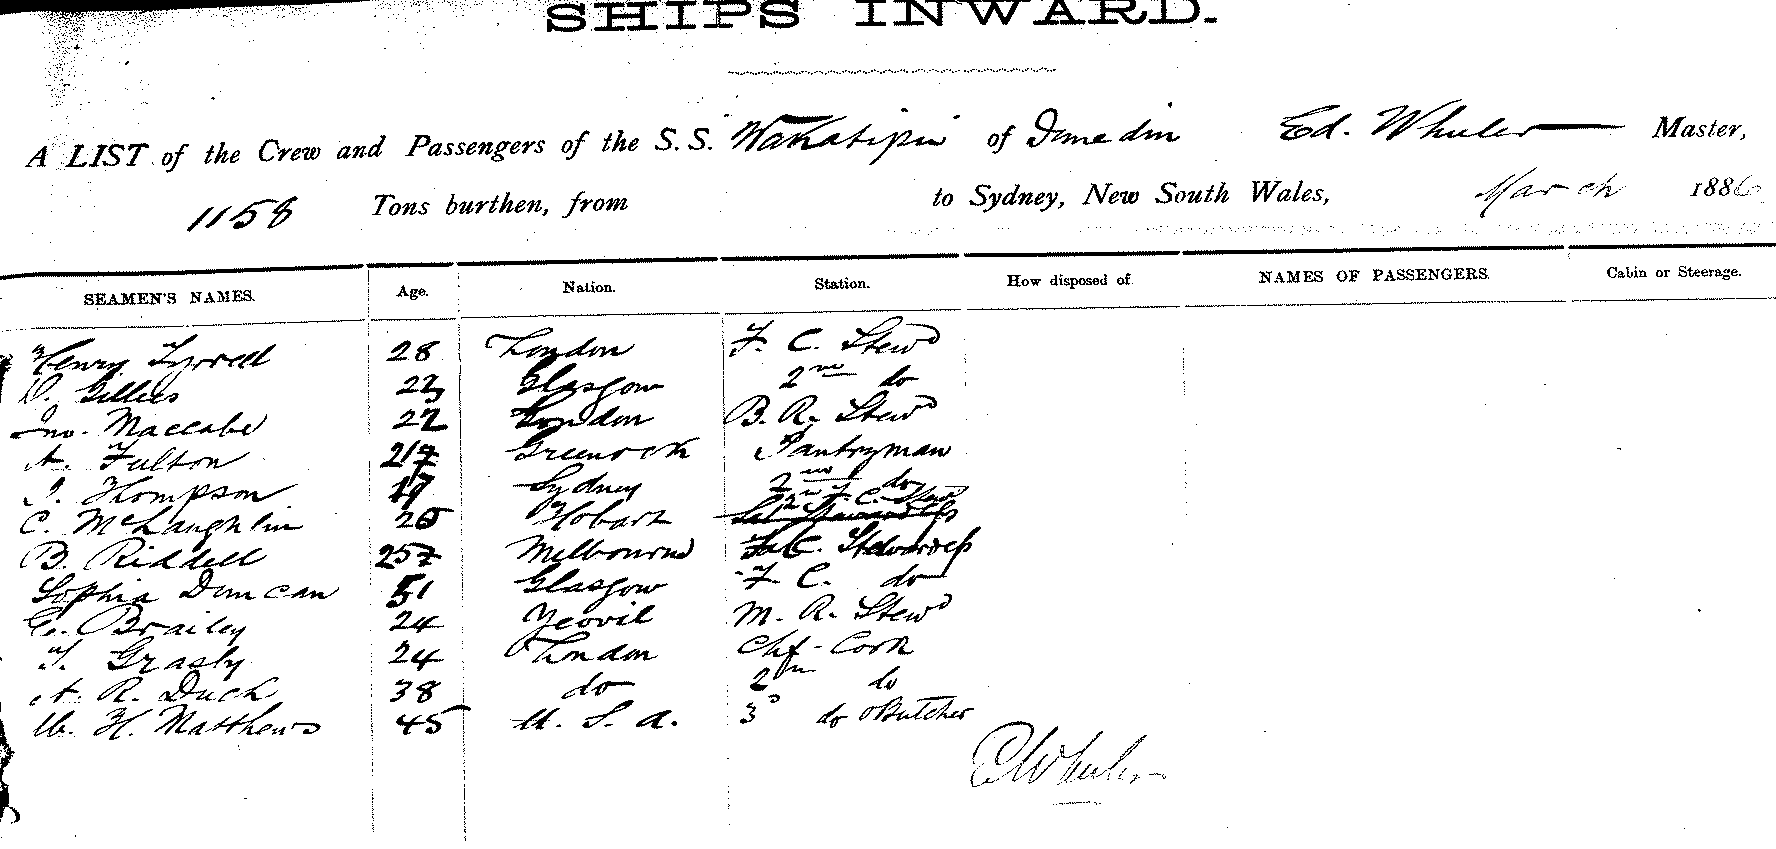 SHIPS INWARD.
A LIST of the Crew and Passengers of the S.S. Wakatipu of Dunedin Ed. Wheeler Master,
1158 Tons burthen, from to Sydney, New South Wales, March 1886
SEAMEN'S NAMES. Age. Nation. Station. How disposed of NAMES OF PASSENGERS. Cabin or Steerage.
Henry Tyrrell 28 London F. C. Stewd
D. Gillies 23 Glasgow 2nd do
Jno. Maccabe 22 London B. R. Stewd
A. Fulton Greenock Pantryman
J. Thompson 19 Sydney 2nd do
C. McLaughlin 20 Hobart 2nd F. C. Stewd
B. Riddell 25 Melbourne Stewardess
Sophia Duncan 51 Glasgow F. C. do
G. Brailey 24 Yeovil M. R. Stewd
T. Grasby 24 London Chf. Cook
A. R. Duck 38 do 2nd do
W. H. Matthews 45 U. S. A. 3d do Butcher
E Wheeler